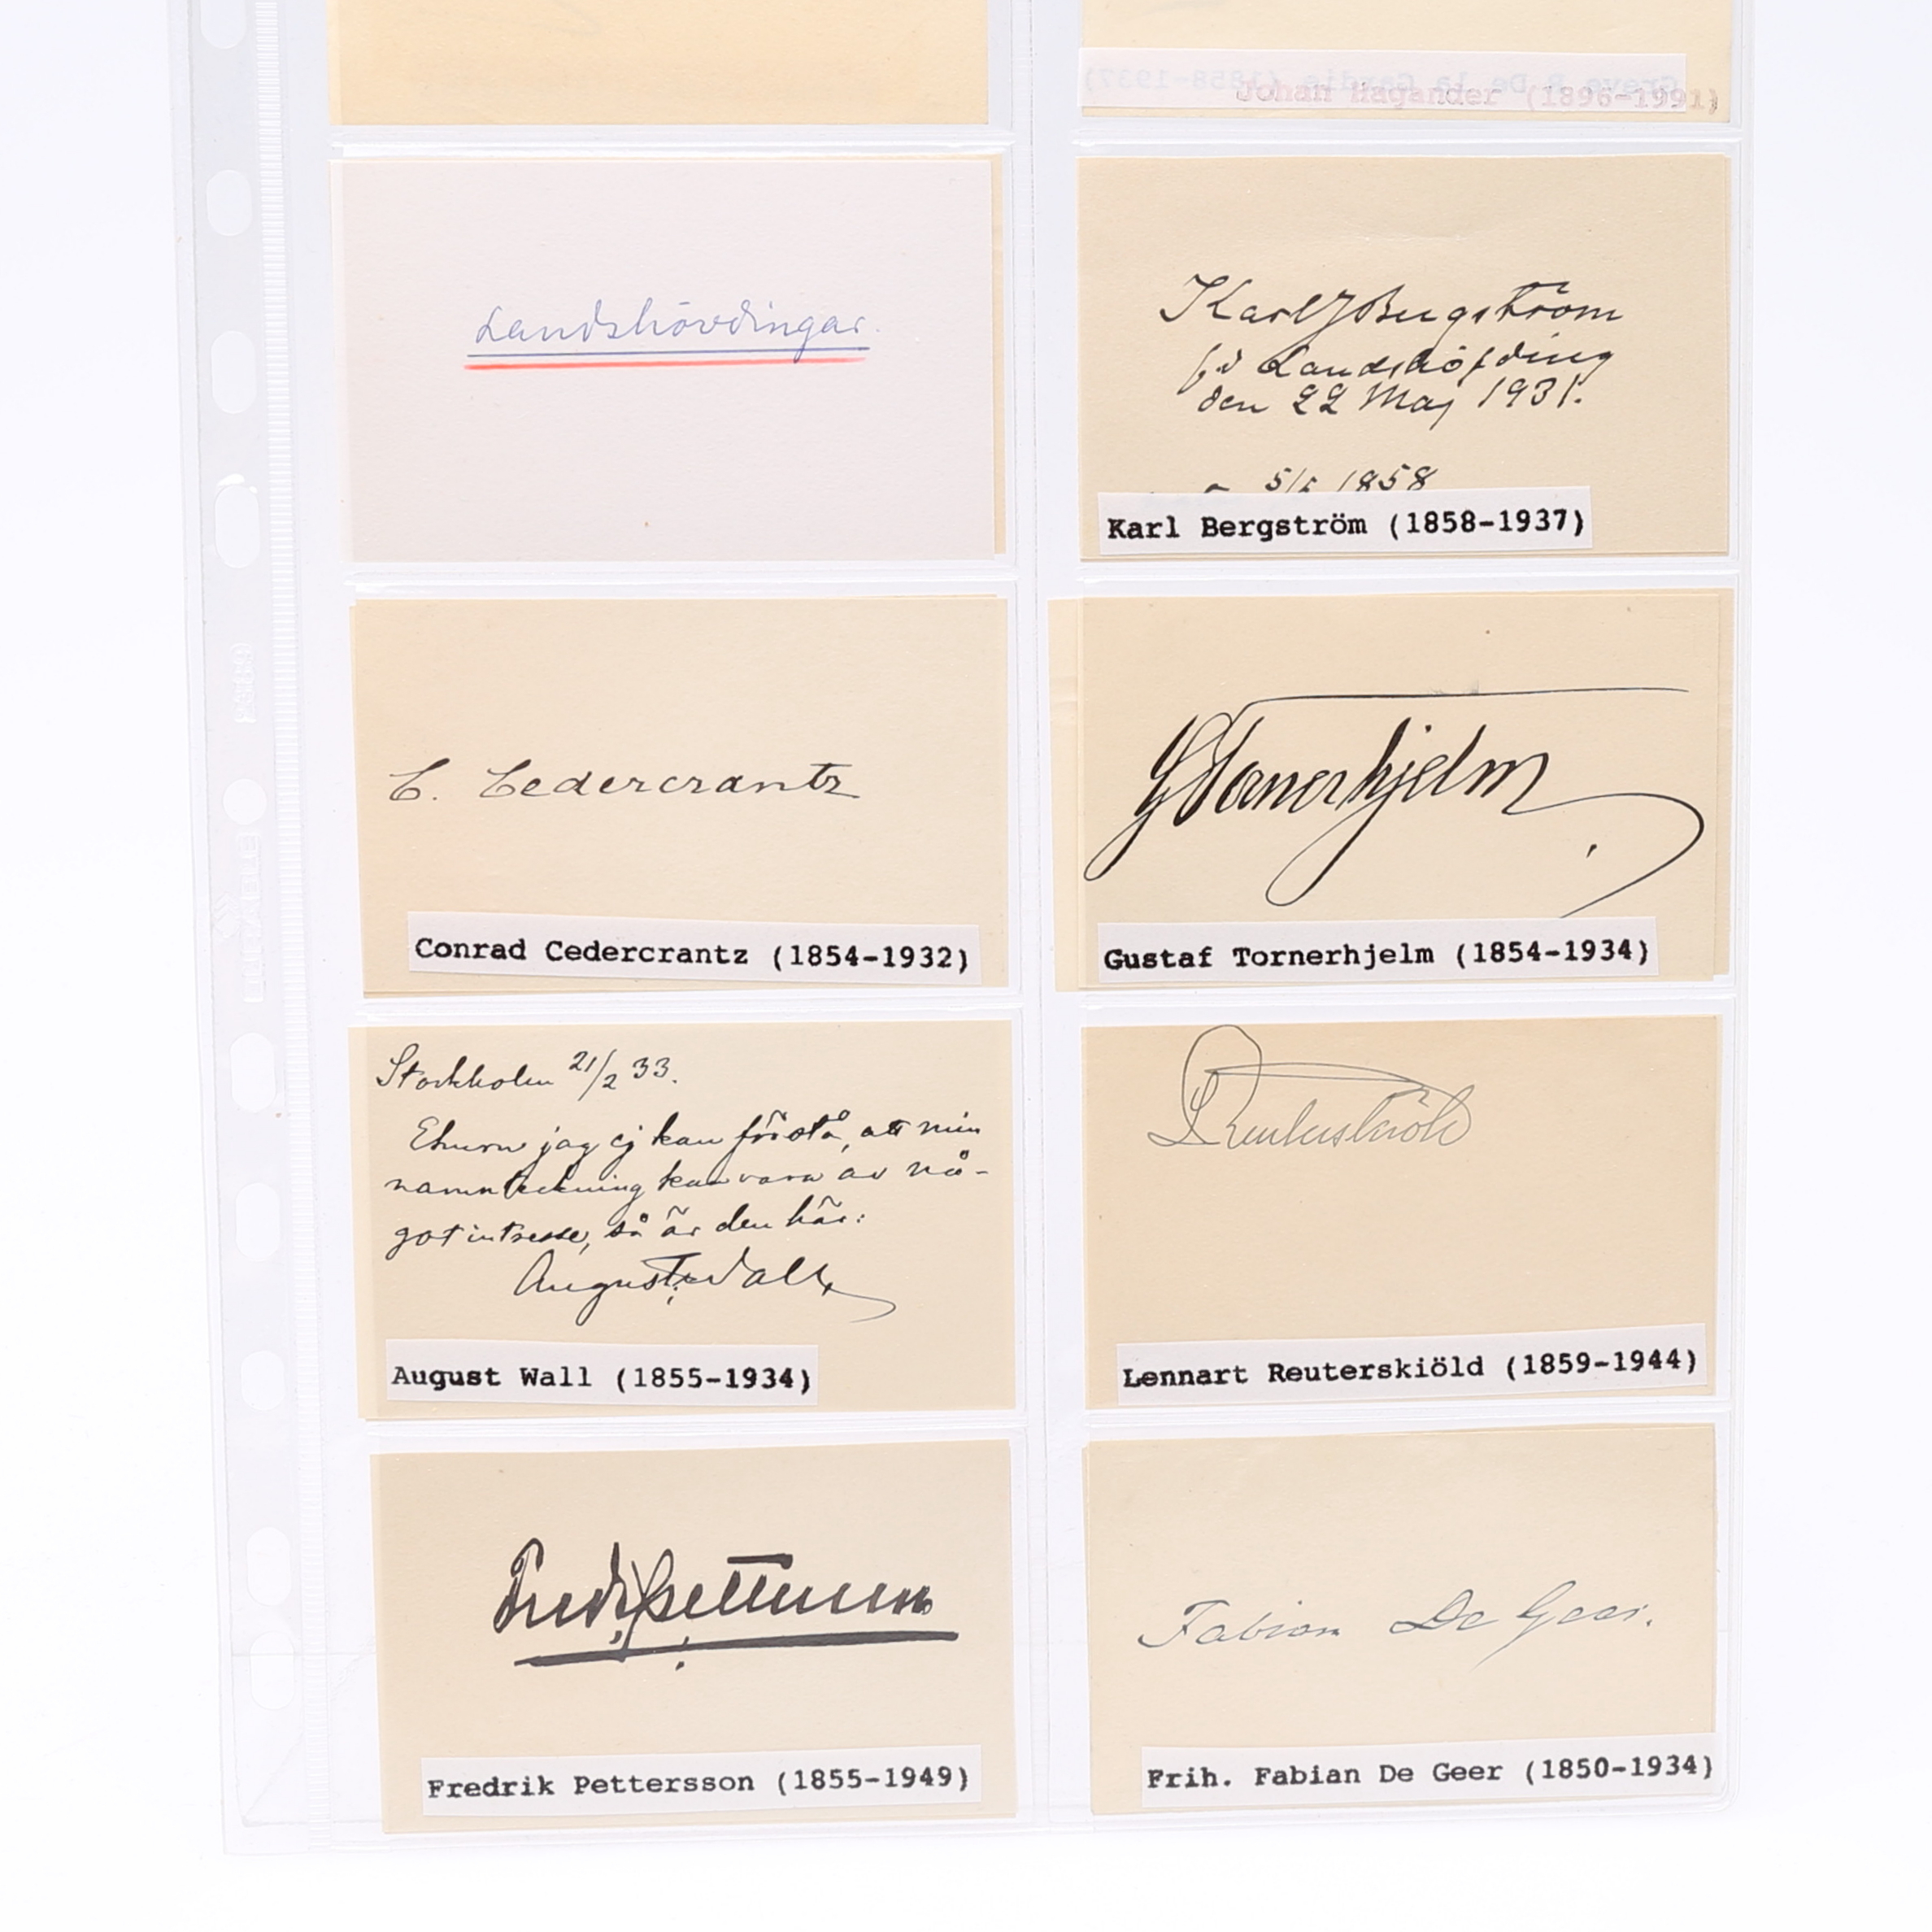 Johan Hagander (1896-1991)
Landshövdingar.
Karl J Bergström
f.d Landshöfding
den 22 Maj 1931.
5/5 1858
Karl Bergström (1858-1937)
C. Cedercrantz
Conrad Cedercrantz (1854-1932)
GTornerhjelm
Gustaf Tornerhjelm (1854-1934)
Stockholm 21/2 33.
Ehuru jag ej kan förstå, att min
namnteckning kan vara av nå-
got intresse, så är den här:
August Wall
August Wall (1855-1934)
LReuterskiöld
Lennart Reuterskiöld (1859-1944)
Fredr. Pettersson
Fredrik Pettersson (1855-1949)
Fabian De Geer.
Frih. Fabian De Geer (1850-1934)